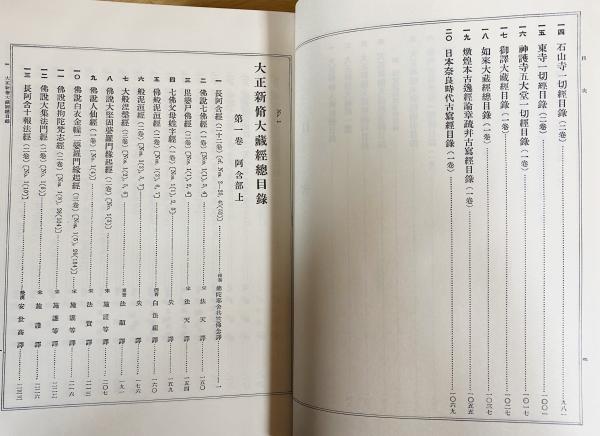 目次
一四 石山寺一切經目錄(二卷)…九八一
一五 東寺一切經目錄(二卷)…一〇〇一
一六 神護寺五大堂一切經目錄(一卷)…一〇一七
一七 御譯大藏經目錄(一卷)…一〇二七
一八 如來大藏經總目錄(一卷)…一〇三七
一九 燉煌本古逸經論章疏并古寫經目錄(一卷)…一〇五五
二〇 日本奈良時代古寫經目錄(一卷)…一〇六九
大正新脩大藏經總目錄
第一卷 阿含部上
No. 1
一 長阿含經(二十二卷)…後秦 佛陀耶舍共竺佛念譯…一
二 佛說七佛經(一卷)〔No. 1(1), 3, 4〕…宋 法天譯…一五〇
三 毘婆尸佛經(二卷)〔No. 1(1), 2, 4〕…宋 法天譯…一五四
四 七佛父母姓字經(一卷)〔No. 1(1), 2, 3〕…失譯…一五九
五 佛般泥洹經(二卷)〔No. 1(2), 6, 7〕…西晉 白法祖譯…一六〇
六 般泥洹經(二卷)〔No. 1(2), 5, 7〕…失譯…一七六
七 大般涅槃經(三卷)〔No. 1(2), 5, 6〕…東晉 法顯譯…一九一
八 佛說大堅固婆羅門緣起經(二卷)〔No. 1(3)〕…宋 施護等譯…二〇七
九 佛說人仙經(一卷)〔No. 1(4)〕…宋 法賢譯…二一三
一〇 佛說白衣金幢二婆羅門緣起經(三卷)〔No. 1(5), 26(154)〕…宋 施護等譯…二一六
一一 佛說尼拘陀梵志經(二卷)〔No. 1(8), 26(104)〕…宋 施護等譯…二二二
一二 佛說大集法門經(二卷)〔No. 1(9)〕…宋 施護譯…二二六
一三 長阿含十報法經(二卷)〔No. 1(10)〕…後漢 安世高譯…二三三
大正新脩大藏經總目錄